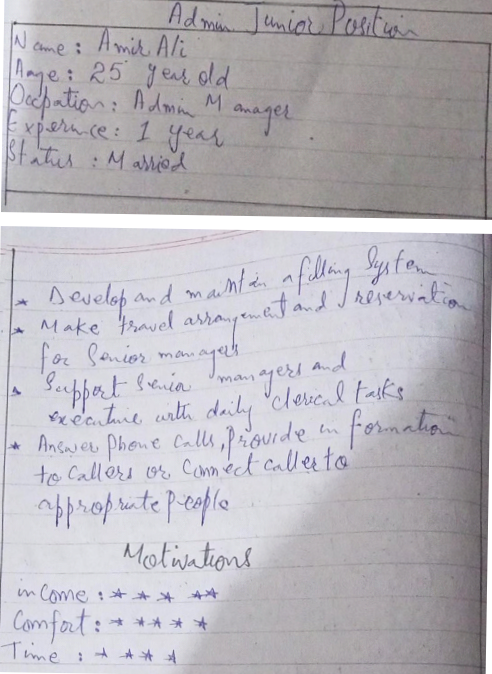 Admin Junior Position
Name : Amir Ali
Aage : 25 year old
Occpation : Admin Manager
Experince : 1 year
Status : Married
* Develop and maintain a filling System
* Make travel arrangement and reservation
for Senior managers
* Support Senior managers and
executive with daily clerical tasks
* Answer phone calls, provide information
to callers or connect caller to
appropriate people
Motivations
income : * * * * *
Comfort : * * * * *
Time : * * * *